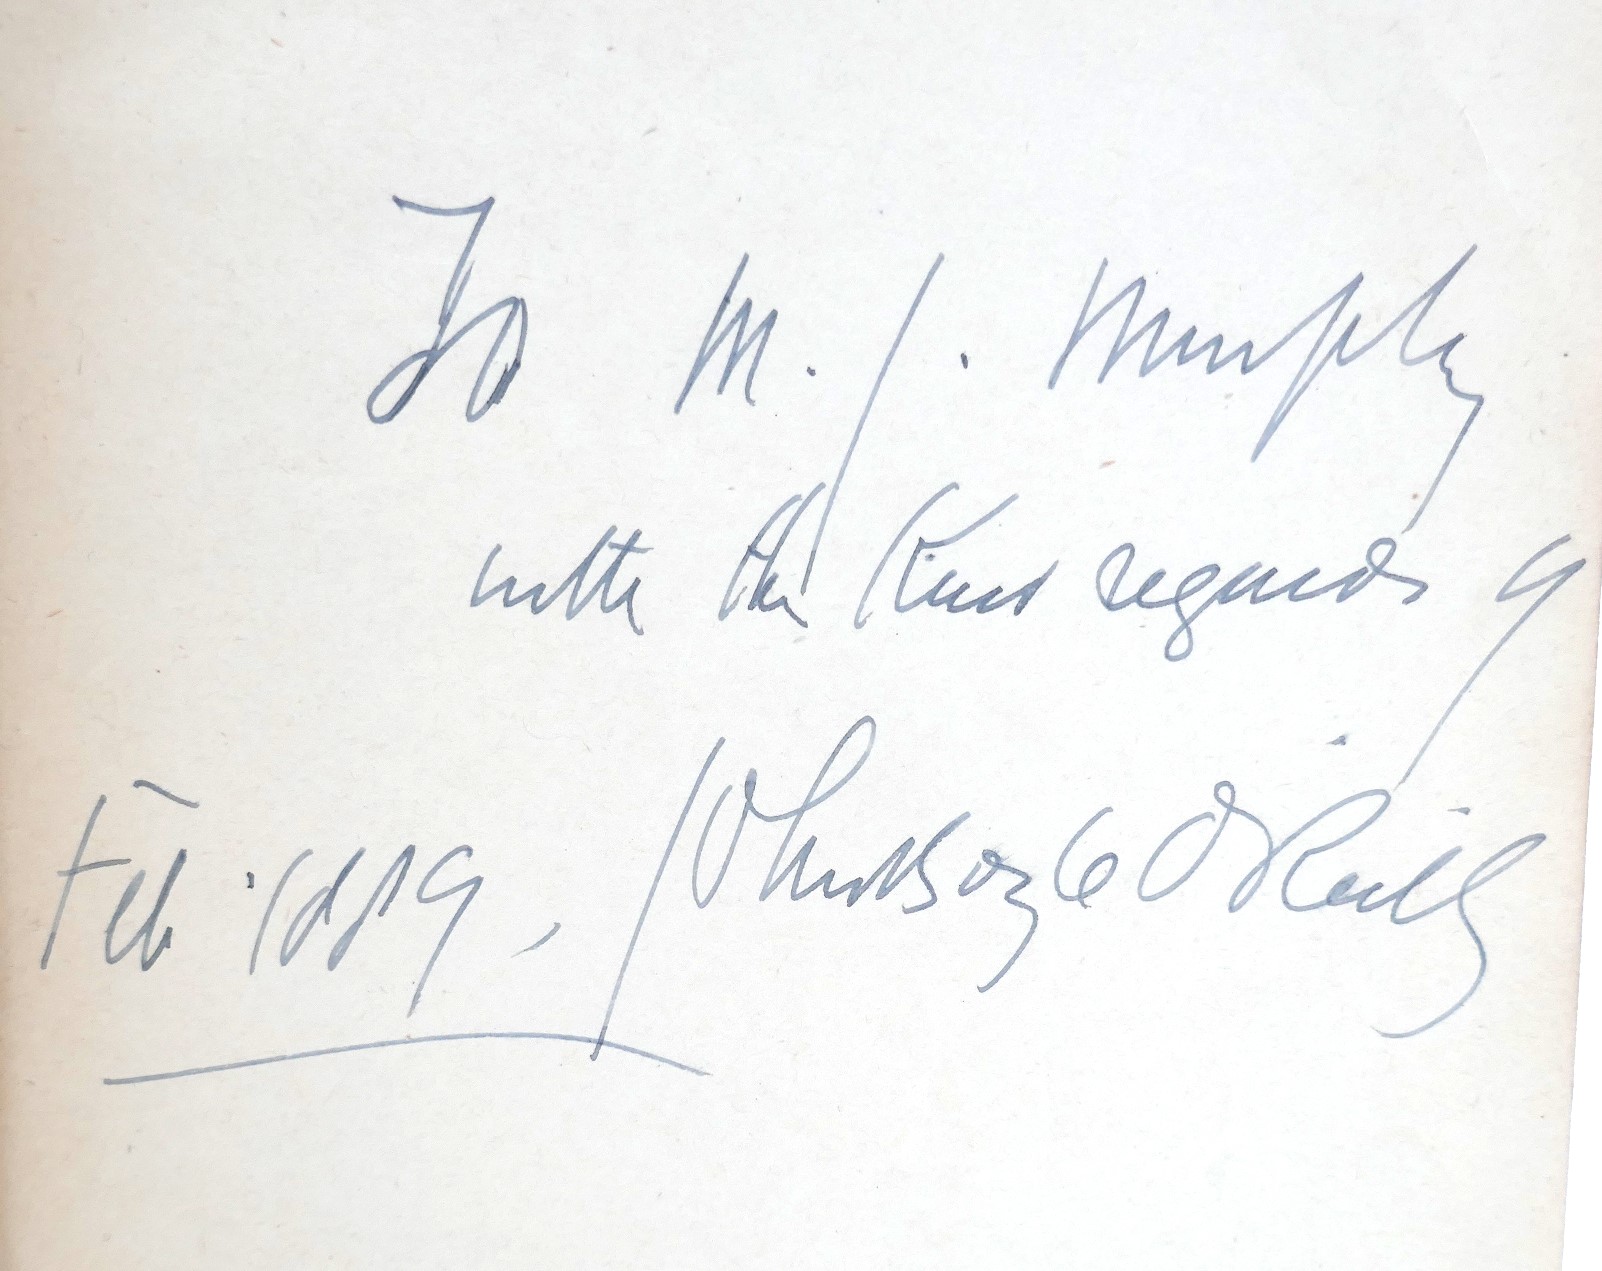 To M. J. Murphy
with the kind regards of
John Boyle O'Reilly
Feb 1889,